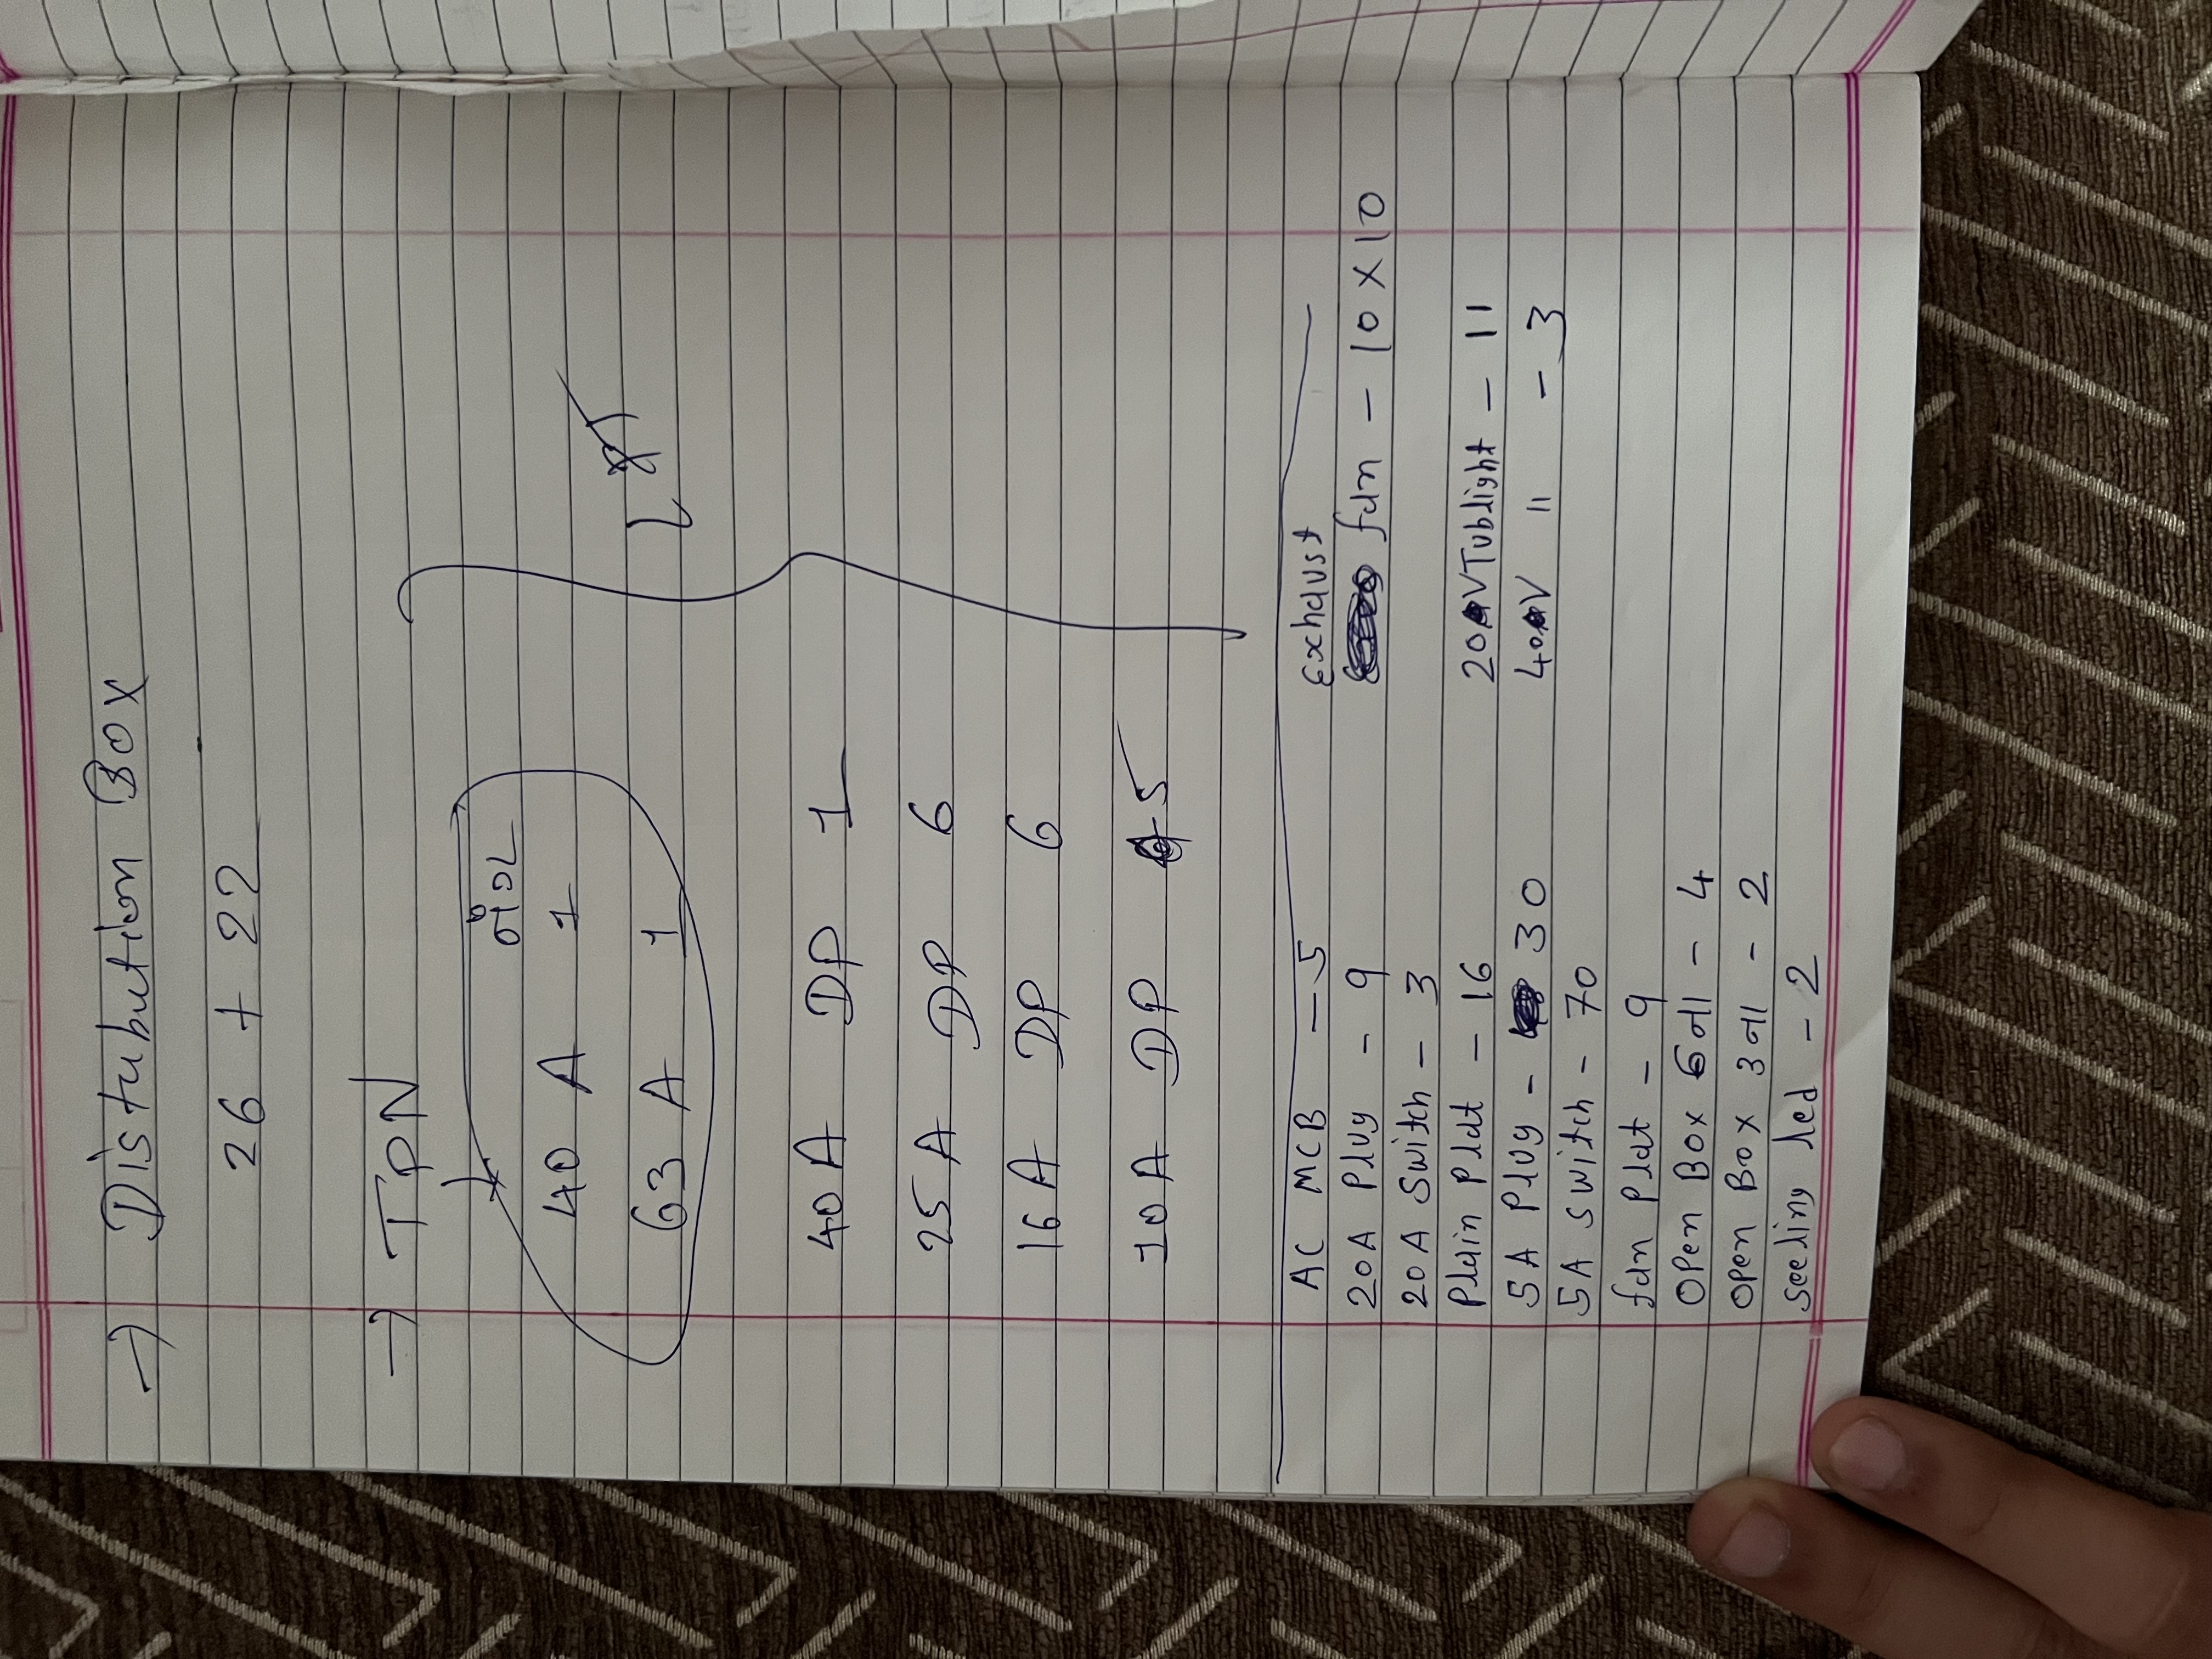 → Distubution Box
26 + 22
→ TPN
નંગ
40 A 1
63 A 1
40 A DP 1
25 A DP 6
16 A DP 6
10 A DP 5
AC MCB - 5
20A Plug - 9
20A Switch - 3
Plain Plat - 16
5A Plug - 30
5A switch - 70
fan Plat - 9
Open Box 6 ના - 4
open Box 3 ના - 2
seeling led - 2
Exhaust
fan - 10 X 10
20 V Tublight - 11
40 V 11 - 3